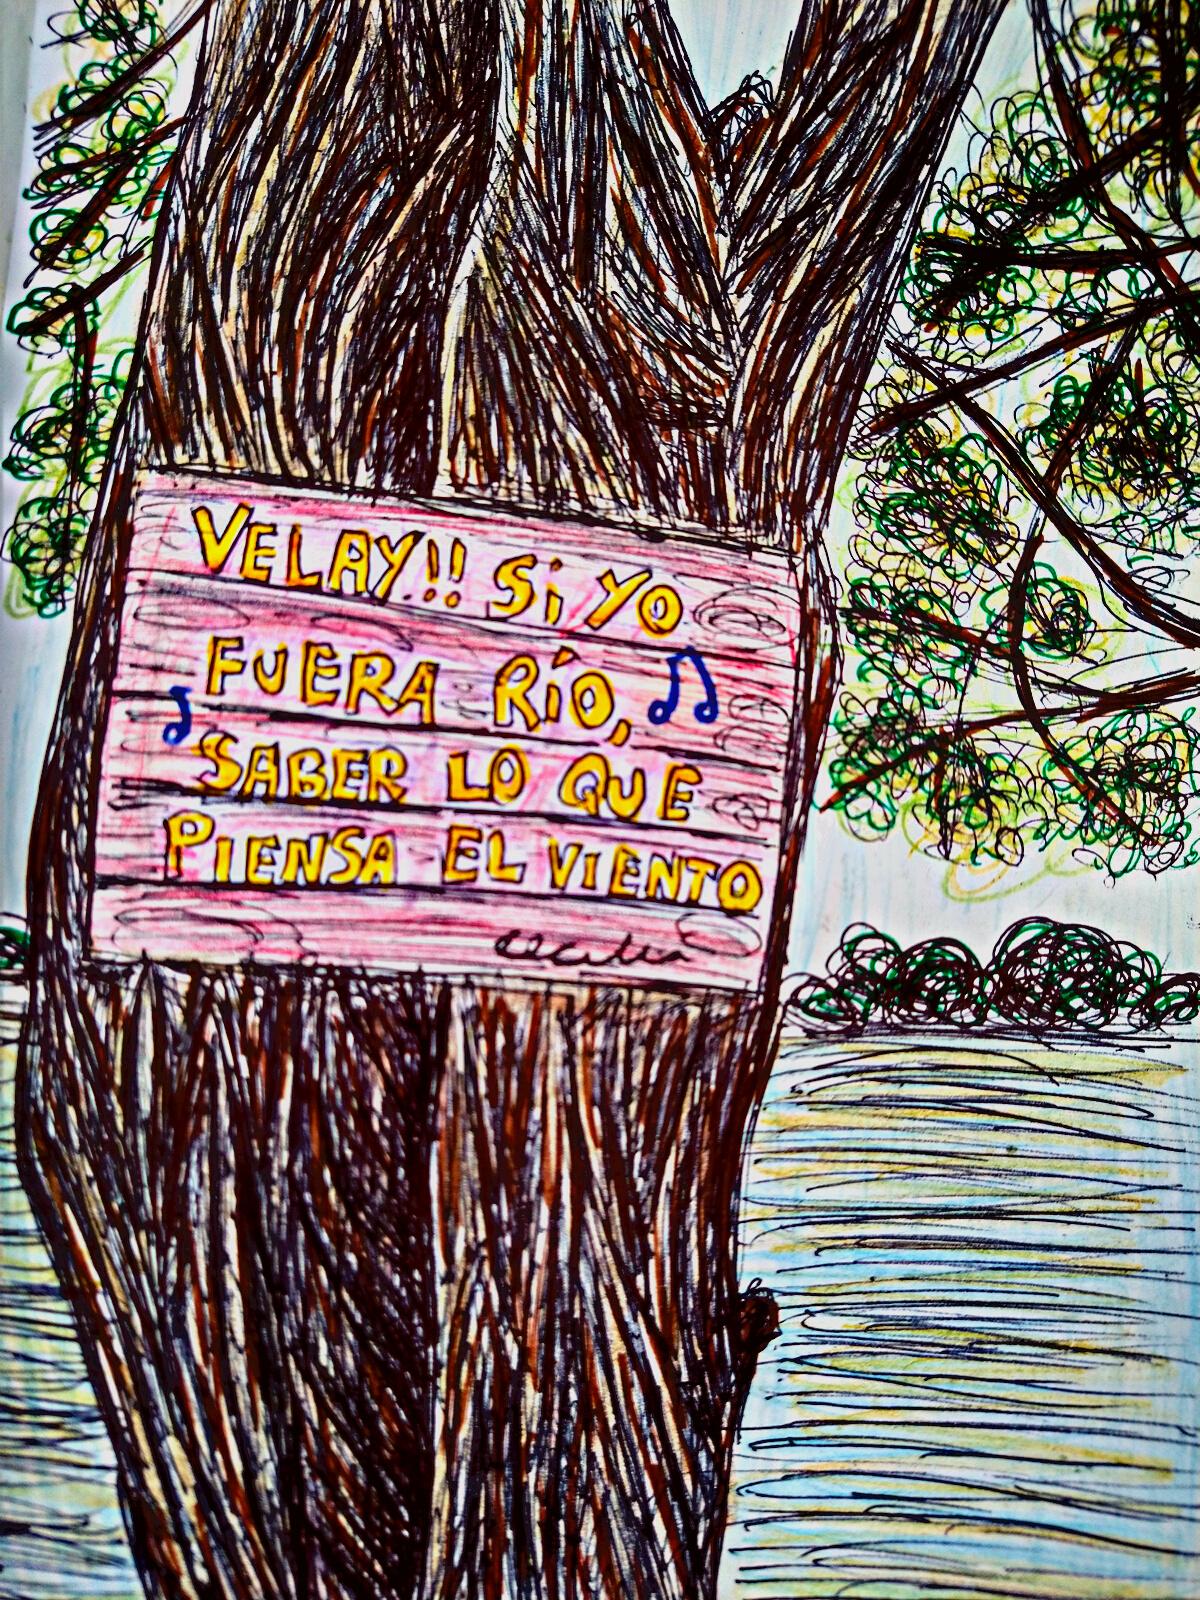 VELAY!! Si YO
FUERA RÍO,
SABER LO QUE
PIENSA EL VIENTO
Cecilia